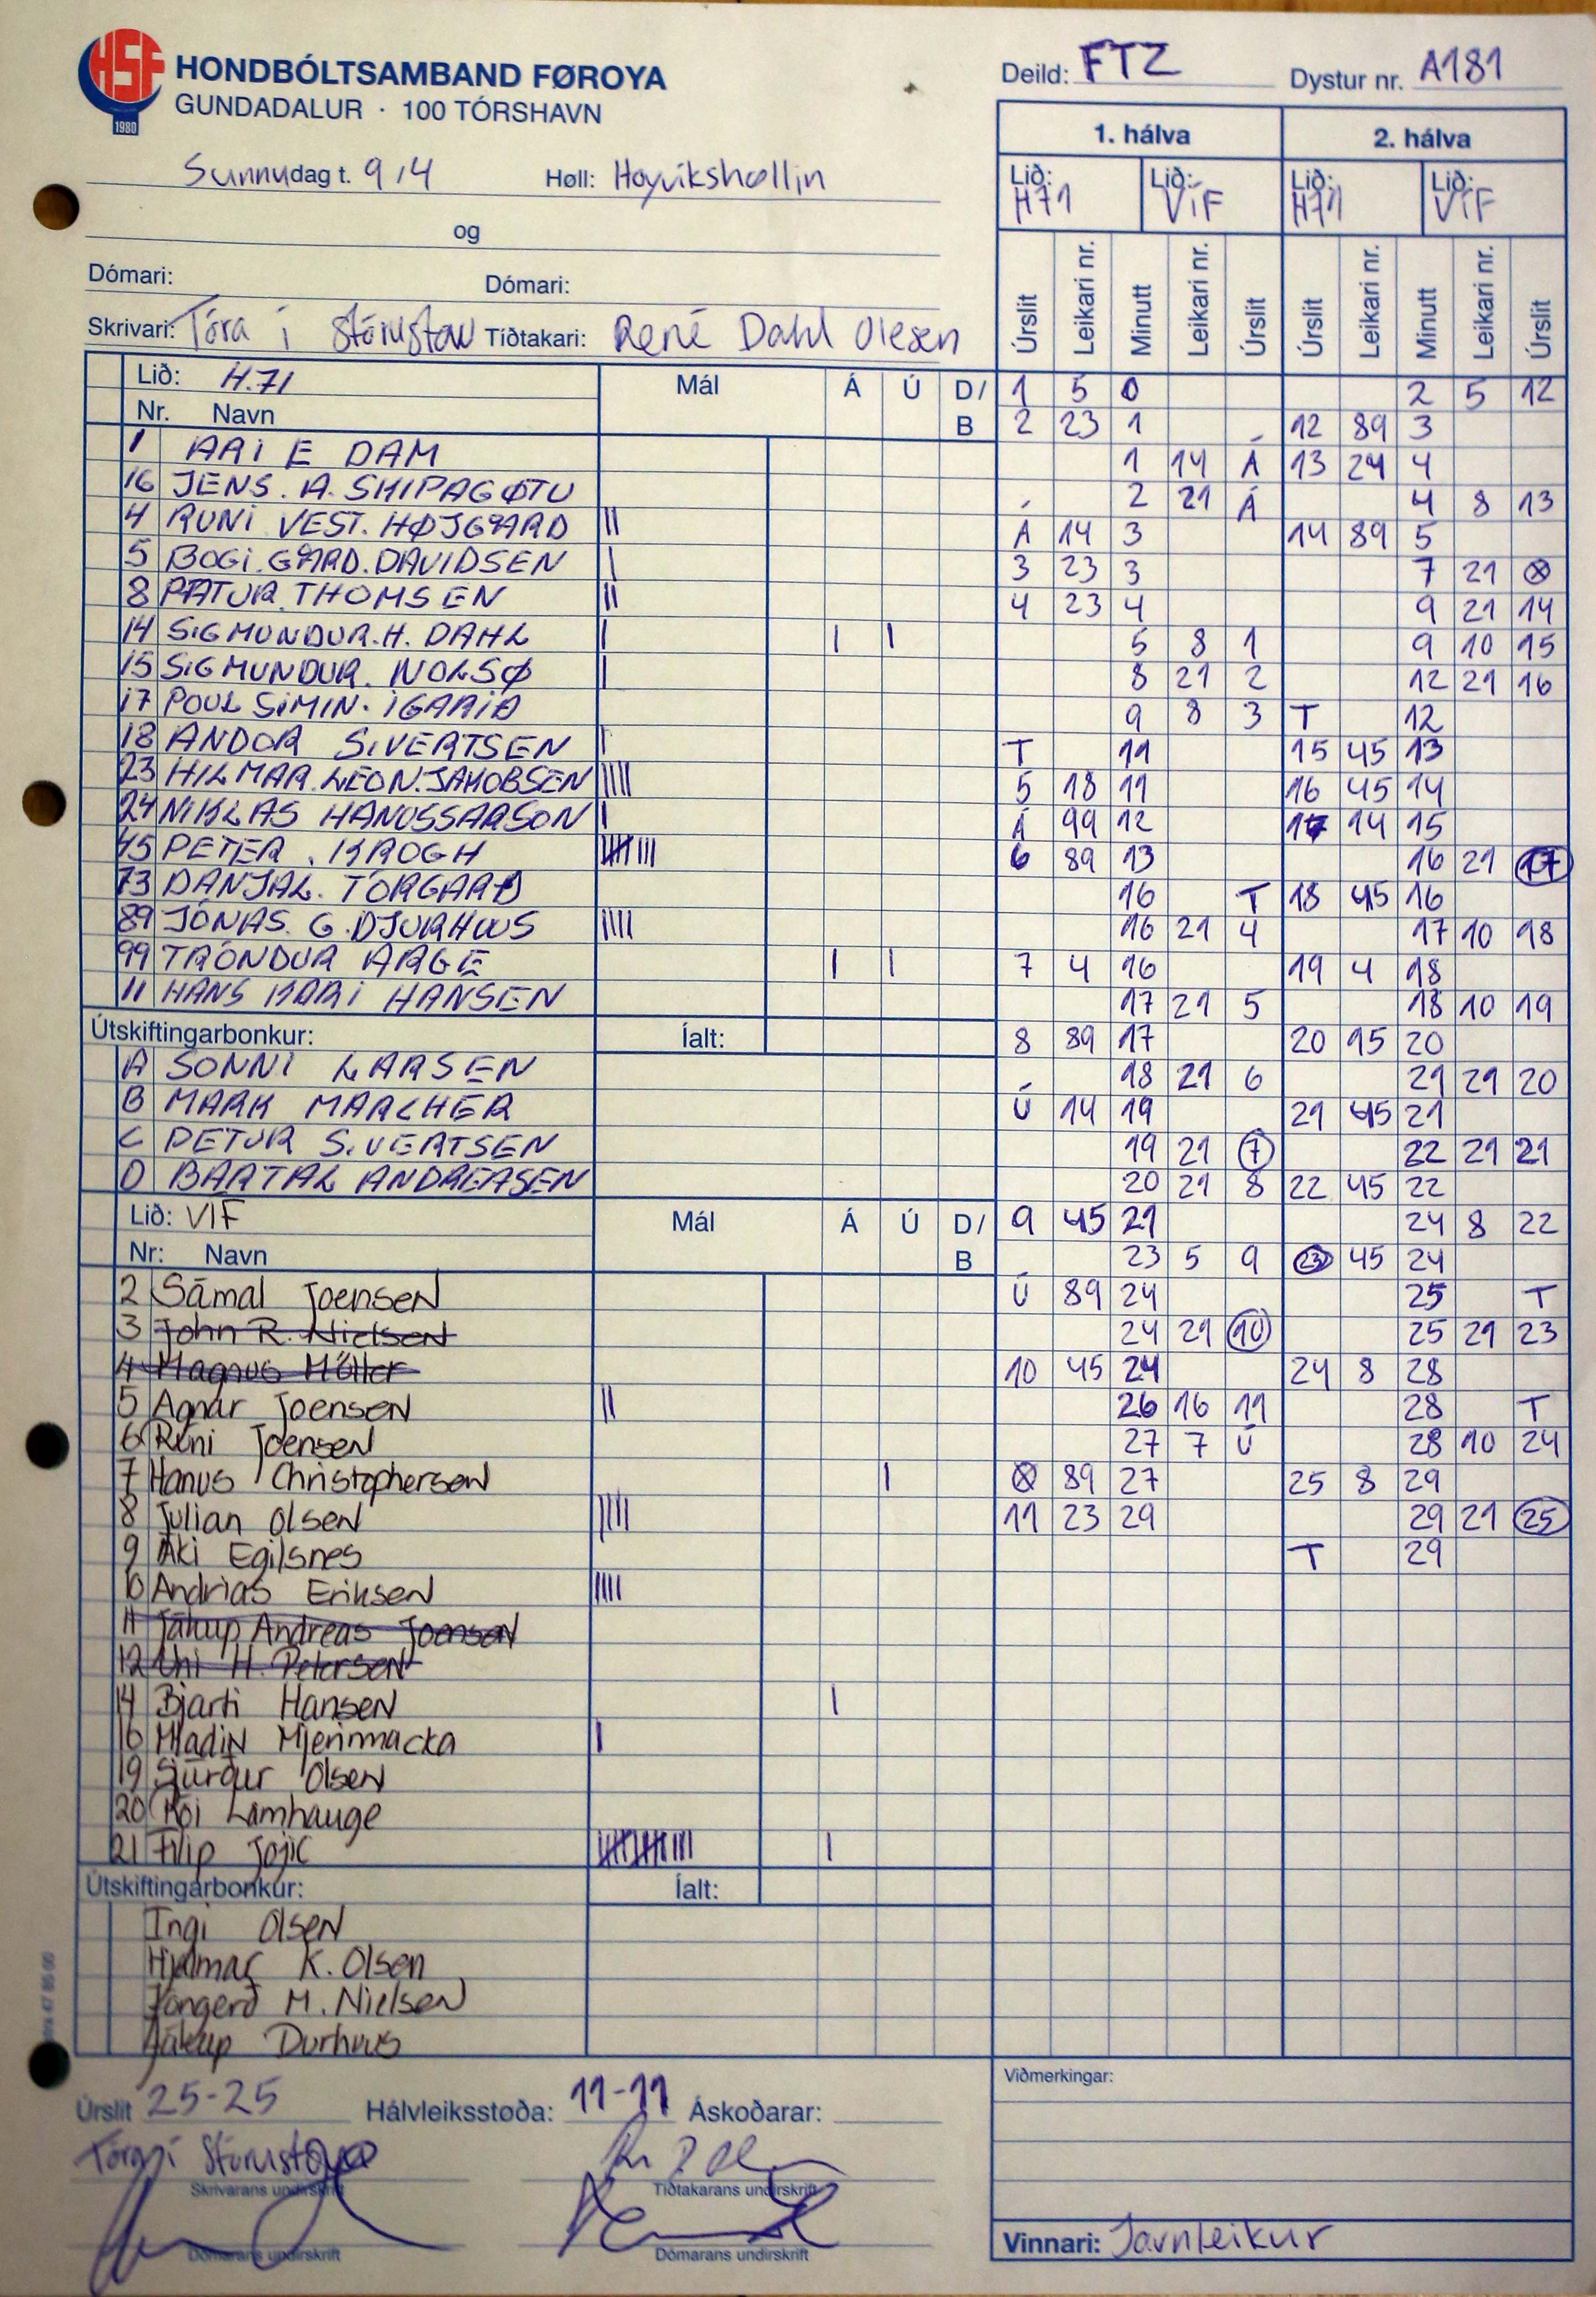 HSF
1980
HONDBÓLTSAMBAND FØROYA
GUNDADALUR · 100 TÓRSHAVN
Deild: FTZ Dystur nr. A181
Sunnudag t. 9/4 Høll: Hoyvikshøllin
og
Dómari: Dómari:
Skrivari: Tóra í Stórustovu Tíðtakari: René Dahl Olesen
1. hálva 2. hálva
Lið: H71 Lið: VÍF Lið: H71 Lið: VÍF
Úrslit Leikari nr. Minutt Leikari nr. Úrslit Úrslit Leikari nr. Minutt Leikari nr. Úrslit
Lið: H.71 Mál Á Ú D/
Nr. Navn B
1 ARI E DAM
16 JENS. A. SKIPAGØTU
4 RUNI VEST. HØJGAARD ||
5 BOGI. GÅRD. DAVIDSEN |
8 PÆTUR. THOMSEN ||
14 SIGMUNDUR. H. DAHL | | |
15 SIGMUNDUR. NOLSØ |
17 POUL SIMIN. IGARIÐ
18 ANDOR SIVERTSEN |
23 HILMAR. LEON. JAKOBSEN ||||
24 NIKLAS HANUSSARSON |
45 PETER. KROGH |||| |||
73 DANJAL. TORGARÐ
89 JÓNAS. G. DJURHUUS ||||
99 TRÓNDUR ARGE | |
11 HANS KÁRI HANSEN
Útskiftingarbonkur: Íalt:
A SONNI LARSEN
B MARK MARCHER
C PETUR SIVERTSEN
D BÁRTAL ANDREASEN
Lið: VIF Mál Á Ú D/
Nr: Navn B
2 Sámal Joensen
3 John R. Nielsen
4 Magnus Möller
5 Agnar Joensen ||
6 Rúni Joensen
7 Hanus Christophersen |
8 Julian Olsen ||||
9 Áki Egilsnes
10 Andrias Eriksen ||||
11 Jákup Andreas Joensen
12 Uni H. Petersen
14 Bjarti Hansen |
16 Mladin Mjerinmacka |
19 Sjúrður Olsen
20 Rói Lamhauge
21 Filip Jojic |
Útskiftingarbonkur: Íalt:
Ingi Olsen
Hjalmar K. Olsen
Jongerð M. Nielsen
Jákup Durhuus
1 5 0 2 5 12
2 23 1 12 89 3
1 14 Á 13 24 4
2 21 Á 4 8 13
Á 14 3 14 89 5
3 23 3 7 21 ⊗
4 23 4 9 21 14
5 8 1 9 10 15
8 21 2 12 21 16
9 8 3 T 12
T 11 15 45 13
5 18 11 16 45 14
Á 99 12 17 14 15
6 89 13 16 21 17
16 T 18 45 16
16 21 4 17 10 18
7 4 16 19 4 18
17 21 5 18 10 19
8 89 17 20 15 20
18 21 6 21 21 20
Ú 14 19 21 45 21
19 21 7 22 21 21
20 21 8 22 45 22
9 45 21 24 8 22
23 5 9 23 45 24
Ú 89 24 25 T
24 21 10 25 21 23
10 45 24 24 8 28
26 16 11 28 T
27 7 Ú 28 10 24
⊗ 89 27 25 8 29
11 23 29 29 21 25
T 29
Úrslit 25-25 Hálvleiksstøða: 11-11 Áskoðarar:
Skrivarans undirskrift Tíðtakarans undirskrift
Dómarans undirskrift Dómarans undirskrift
Viðmerkingar:
Vinnari: Javnleikur